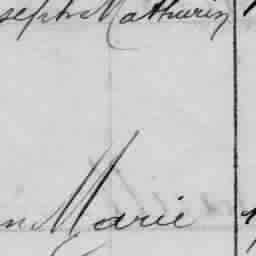 seph Mathurin
n Marie